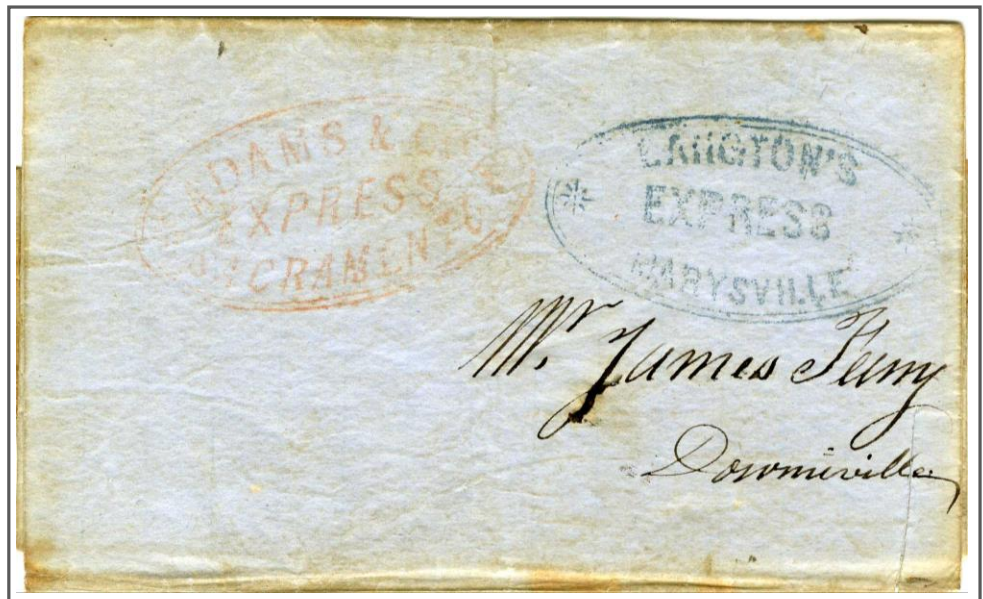 ADAMS & CO.
EXPRESS
SACRAMENTO
LANGTON'S
EXPRESS
MARYSVILLE
Mr. James
Downieville